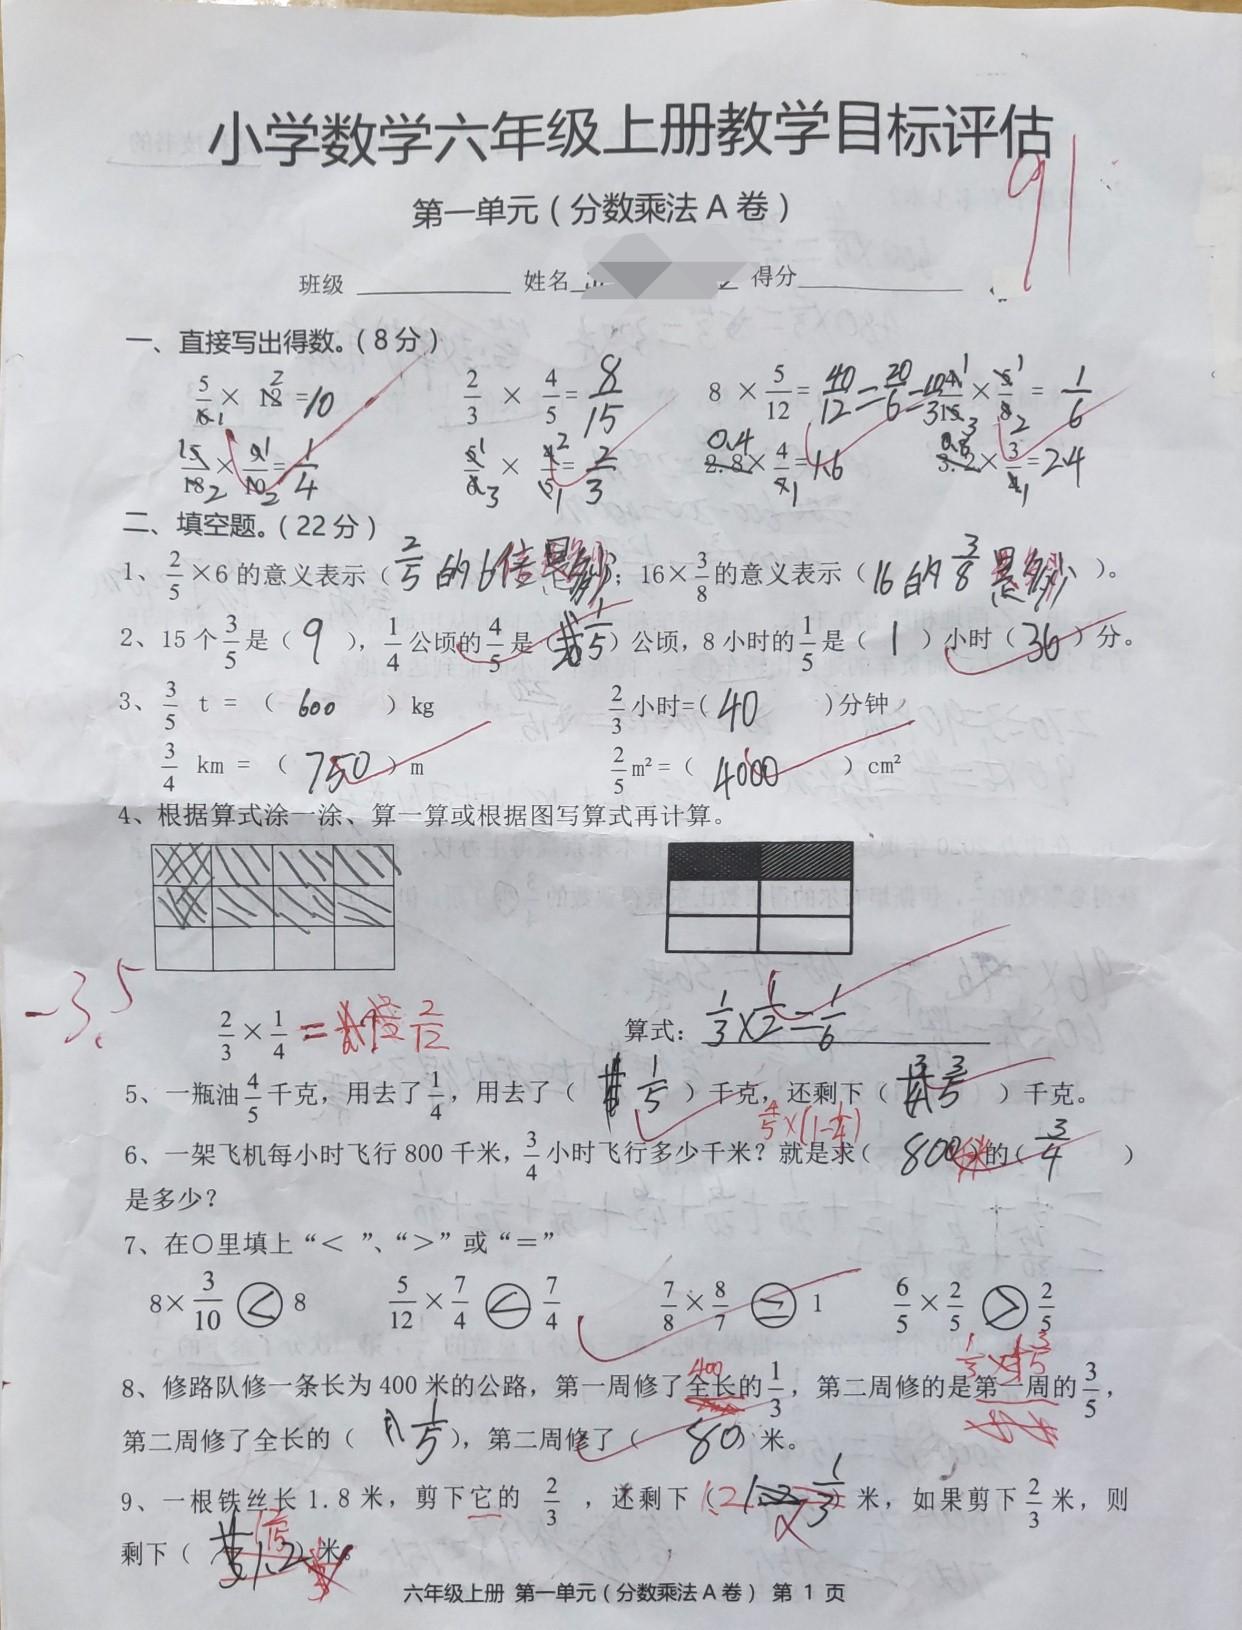 小学数学六年级上册教学目标评估
91
第一单元(分数乘法A卷)
班级 姓名 得分
一、直接写出得数。(8分)
5/6 × 12 =10 2/3 × 4/5 = 8/15 8 × 5/12 = 40/12 = 20/6 = 10/3 4/15 × 5/8 = 1/6
15/18 × 9/10 = 1/4 5/6 × 4/5 = 2/3 2.8 × 4/7 = 1.6 3.2 × 3/4 = 2.4
二、填空题。(22分)
1、2/5×6的意义表示(2/5的6倍是多少);16×3/8的意义表示(16的3/8是多少)。
2、15个3/5是(9),1/4公顷的4/5是(1/5)公顷,8小时的1/5是(1)小时(36)分。
3、3/5 t = (600)kg 2/3小时=(40)分钟
3/4 km = (750)m 2/5m²=(4000)cm²
4、根据算式涂一涂、算一算或根据图写算式再计算。
-3.5
2/3×1/4=2/12 算式:1/3×1/2=1/6
5、一瓶油4/5千克,用去了1/4,用去了(1/5)千克,还剩下(3/5)千克。
4/5×(1-1/4)
6、一架飞机每小时飞行800千米,3/4小时飞行多少千米?就是求(800米的(3/4)
是多少?
7、在○里填上“< ”、“>”或“=”
8×3/10 < 8 5/12×7/4 < 7/4 7/8×8/7 = 1 6/5×2/5 > 2/5
400 1/3×3/5
8、修路队修一条长为400米的公路,第一周修了全长的1/3,第二周修的是第一周的3/5,
第二周修了全长的(1/5),第二周修了(80)米。
9、一根铁丝长1.8米,剪下它的2/3,还剩下( 米,如果剪下2/3米,则
剩下( 1.2)米。
六年级上册 第一单元(分数乘法A卷) 第 1 页